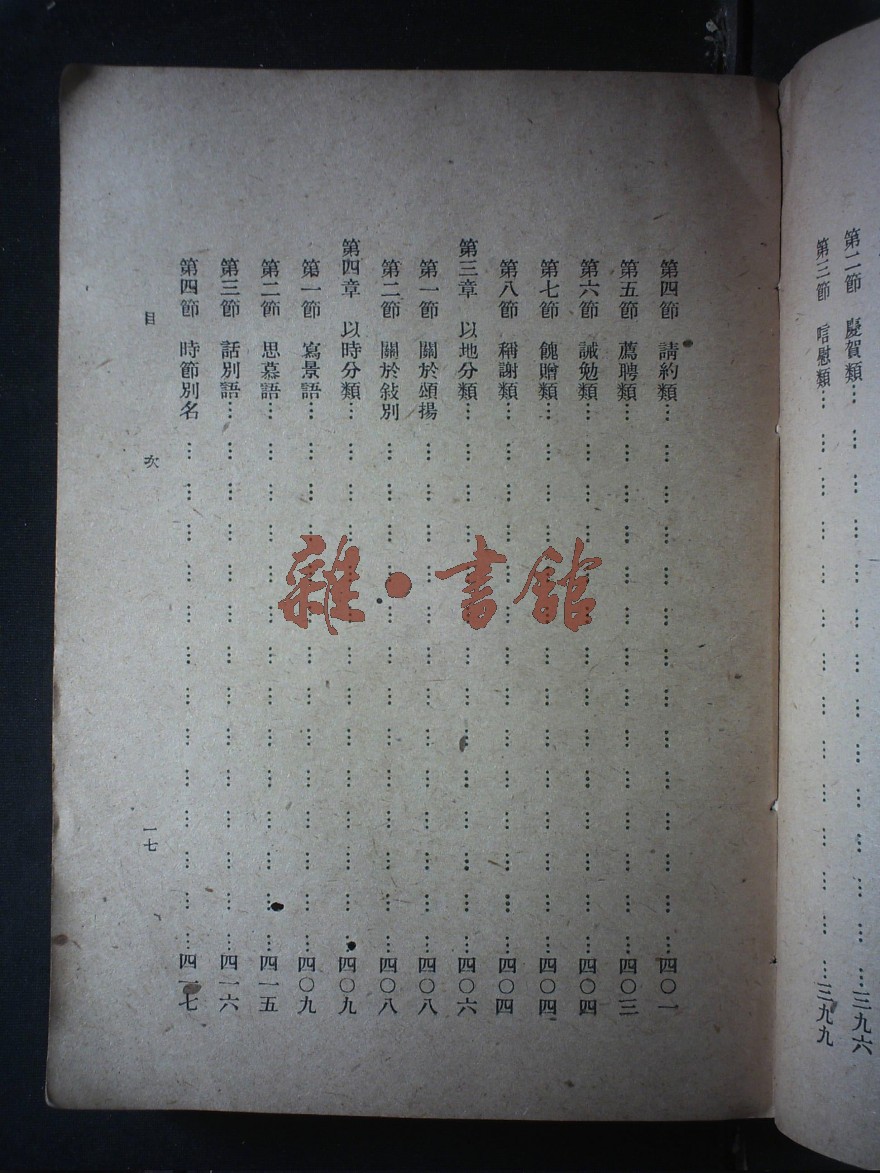 第二節 慶賀類………………………………三九六
第三節 唁慰類………………………………三九九
第四節 請約類………………………………四〇一
第五節 薦聘類………………………………四〇三
第六節 誡勉類………………………………四〇四
第七節 餽贈類………………………………四〇四
第八節 稱謝類………………………………四〇四
第三章 以地分類………………………………四〇六
第一節 關於頌揚………………………………四〇八
第二節 關於敍別………………………………四〇八
第四章 以時分類………………………………四〇九
第一節 寫景語………………………………四〇九
第二節 思慕語………………………………四一五
第三節 話別語………………………………四一六
第四節 時節別名………………………………四一七
目 次 一七
雜·書館